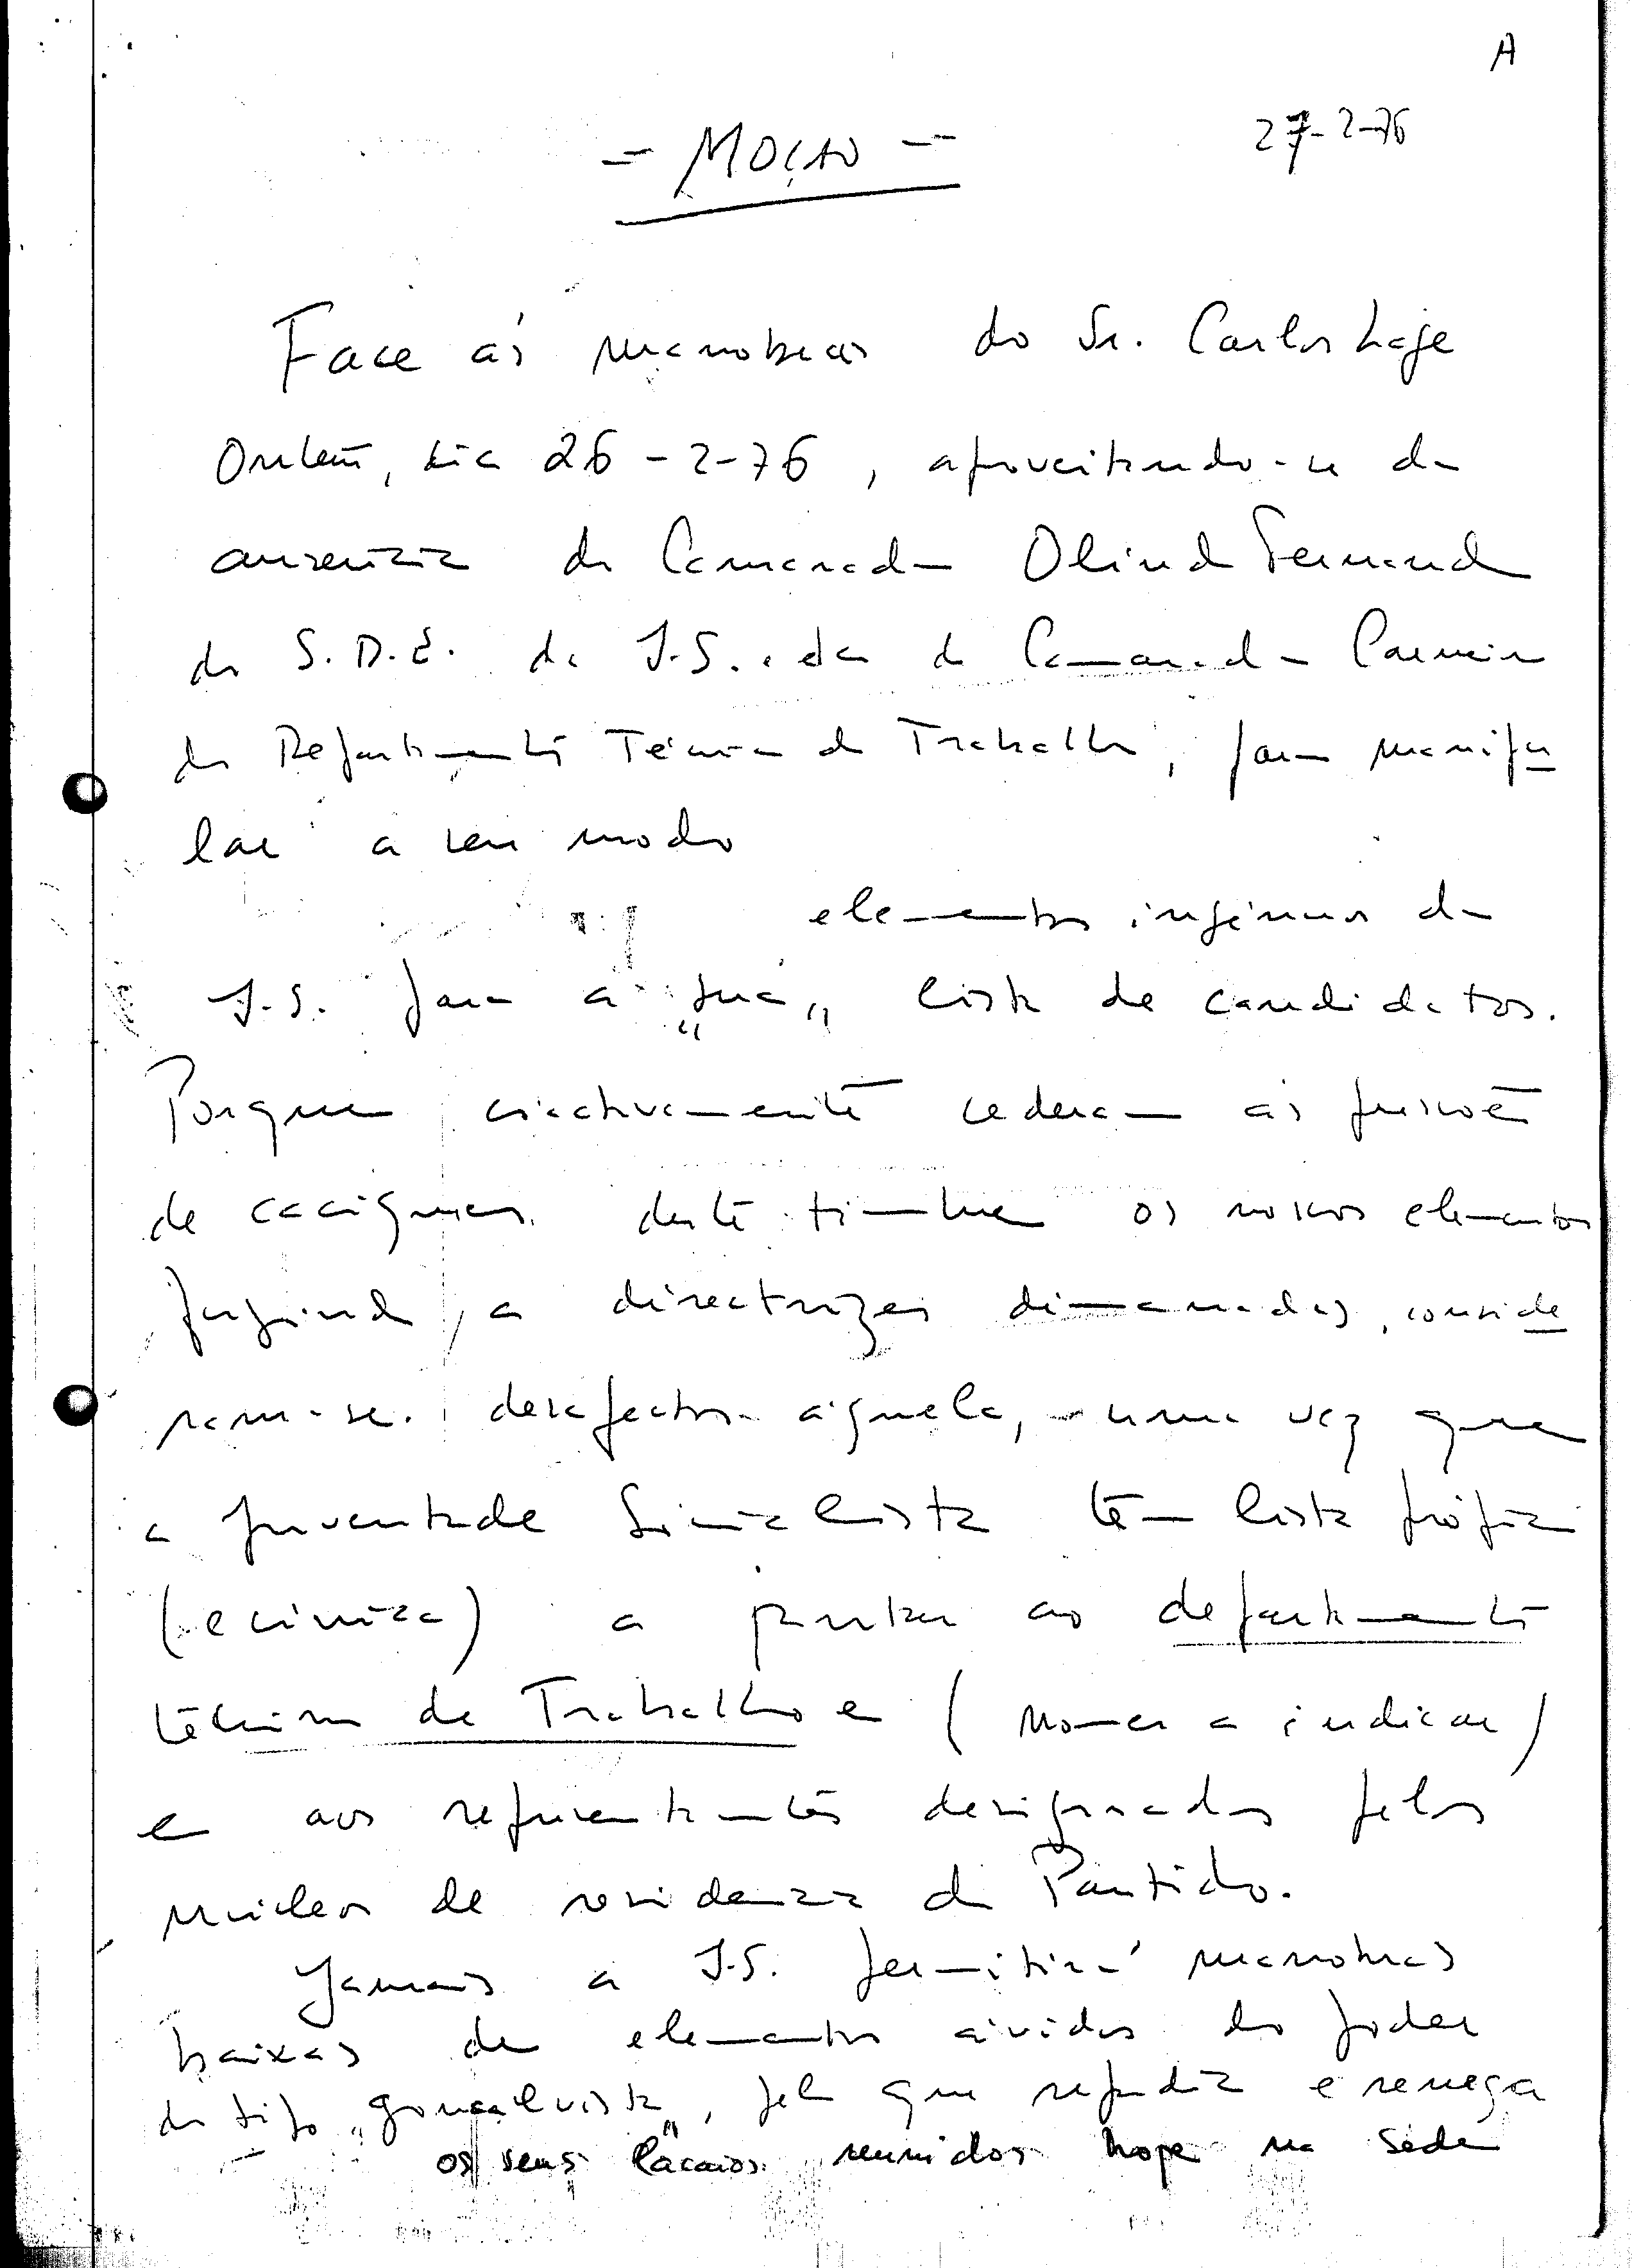 A
27-2-76
- MOÇÃO -
Face às manobras do Sr. Carlos Lage
Ontem, dia 26-2-76, aproveitando-se da
ausência do Camarada Olindo Fernando
do S.D.E. da J.S. e da do Camarada
do Departamento Técnico de Trabalho, para manipu
lar a seu modo
elementos ingénuos da
J.S. para a "sua" lista de candidatos.
Porque cederam às pressões
de caciques deste timbre os nossos elementos
fugindo, a directrizes dimanadas, conside
ram-se desafectos àquela, uma vez que
a Juventude Socialista tem lista própria
(e cívica) a juntar ao departamento
técnico de Trabalho e (nomes a indicar)
e aos representantes designados pelos
núcleos de residência do Partido.
Jamais a J.S. permitirá manobras
baixas de elementos ávidos do poder
do tipo "gonçalvista", pelo que repudia e renega
os seus lacaios reunidos hoje na Sede